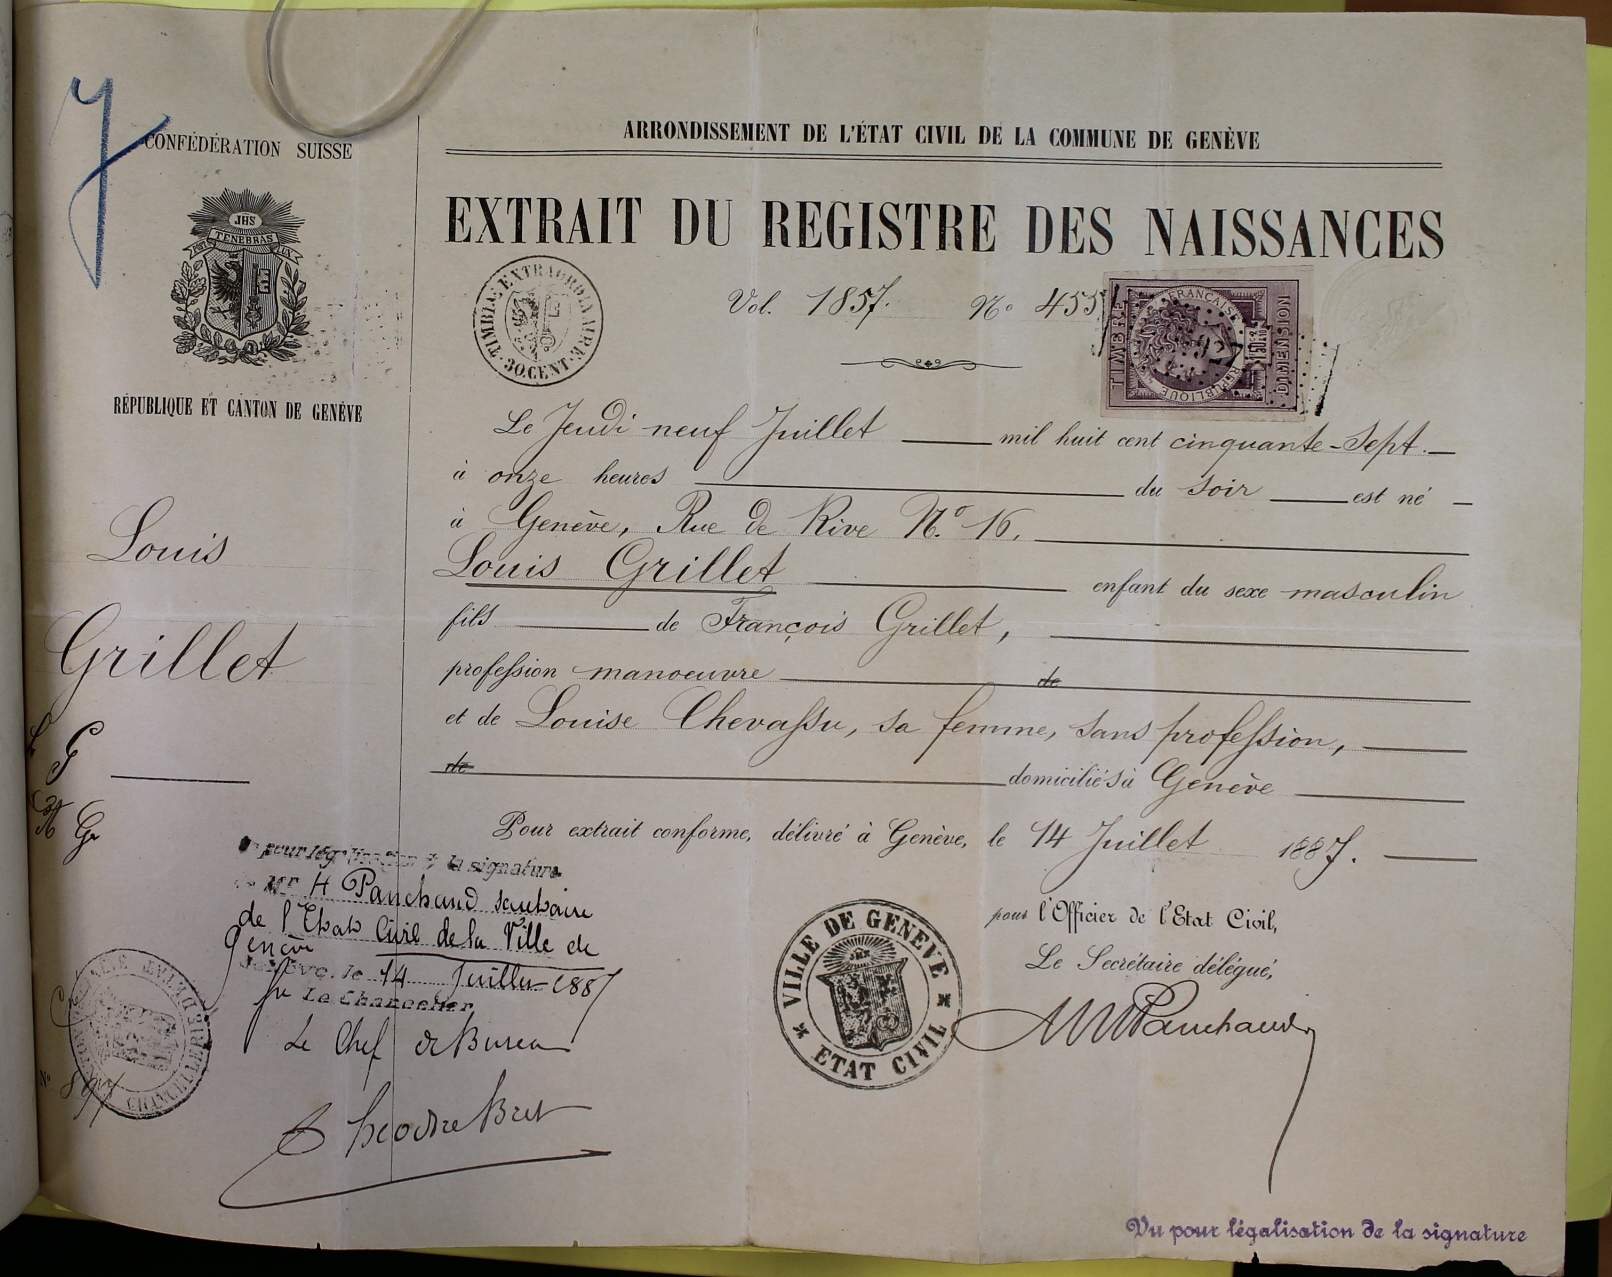 7
CONFÉDÉRATION SUISSE
JHS
POST TENEBRAS LUX
RÉPUBLIQUE ET CANTON DE GENÈVE
Louis
Grillet
ARRONDISSEMENT DE L'ÉTAT CIVIL DE LA COMMUNE DE GENÈVE
EXTRAIT DU REGISTRE DES NAISSANCES
TIMBRE EXTRAORDINAIRE
30. CENT.
Vol. 1857. No 455
TIMBRE
RÉPUBLIQUE FRANÇAISE
DIMENSION
Le Jeudi neuf Juillet mil huit cent cinquante-sept.
à onze heures du soir est né
à Genève, Rue de Rive No. 16.
Louis Grillet enfant du sexe masculin
fils de François Grillet,
profession manoeuvre de
et de Louise Chevassu, sa femme, sans profession,
de domiciliés à Genève
Pour extrait conforme, délivré à Genève, le 14 Juillet 1887.
pour l'Officier de l'Etat Civil,
Le Secrétaire délégué,
Panchaud
VILLE DE GENÈVE
ETAT CIVIL
pour légalisation de la signature
Mr H Panchaud secrétaire
de l'Etat Civil de la Ville de
Genève
Genève, le 14 Juillet 1887
Le Chancelier
Le Chef de Bureau
Théodore Bret
CHANCELLERIE
No 897
Vu pour légalisation de la signature